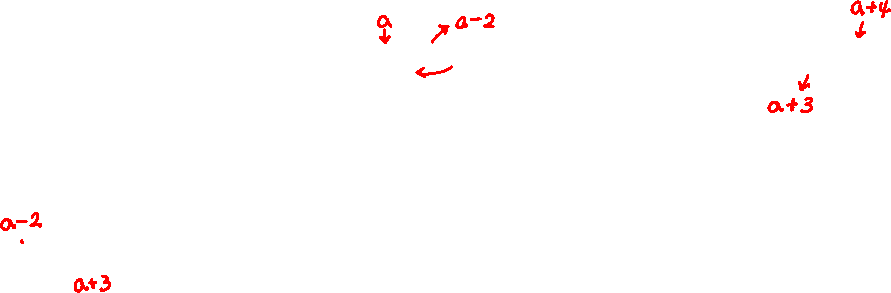 a
a-2
a+4
a+3
a-2
a+3